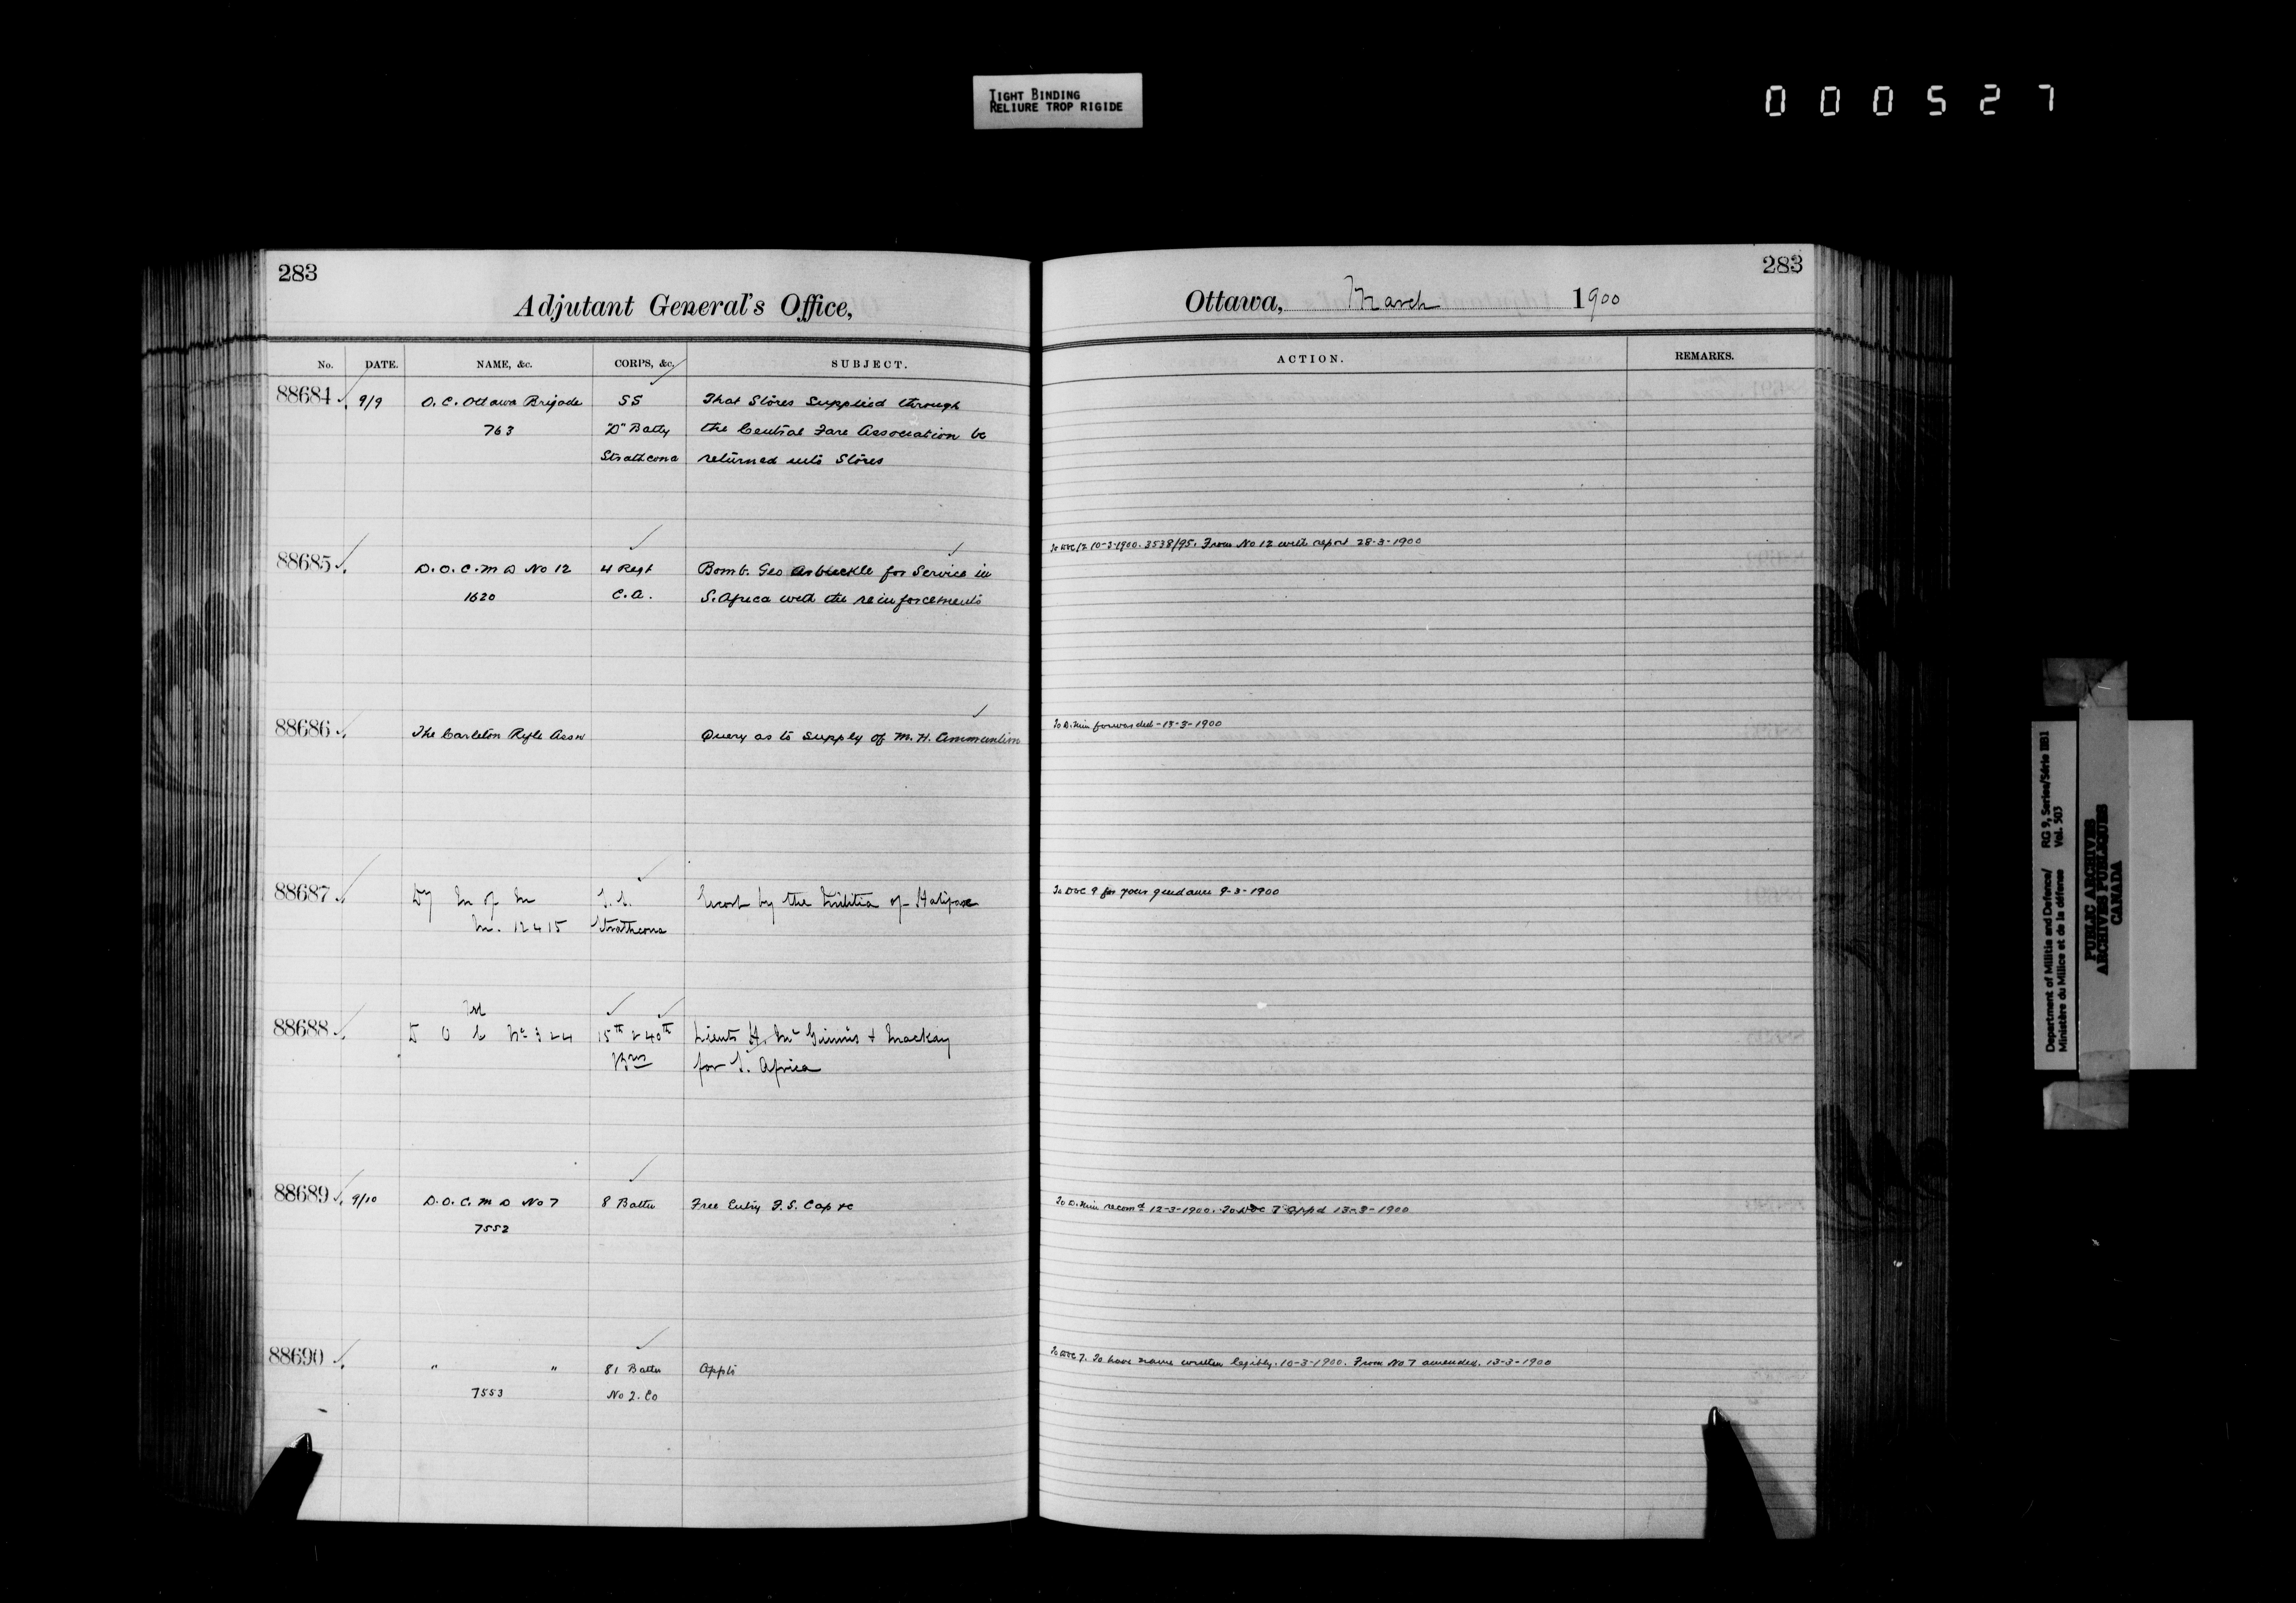 TIGHT BINDING
RELIURE TROP RIGIDE
000527
283
Adjutant General's Office,
No. DATE. NAME, &c. CORPS, &c. SUBJECT.
88684 9/9 O. C. Ottawa Brigade SS That Stores Supplied through
763 "D" Batty the Central Fare Association be
Strathcona returned into Stores
88685 D.O.C. M D No 12 4 Regt Bomb. Geo Arbuckle for Service in
1620 C.A. S. Africa with the reinforcements
88686 The Carleton Rifle Assn Query as to supply of M. H. Ammunition
88687 Dy M of M S.S. Escort by the Militia of Halifax
M. 12415 Strathcona
M
88688 D O C No 3 & 4 15th & 40th Lieuts Mc Ginnis + Mackay
Bns for S. Africa
88689 9/10 D.O.C. M D No 7 8 Batln Free Entry F.S. Cap &c
7552
88690 " " 81 Batln Appts
7553 No 2. Co
283
Ottawa, March 1900
ACTION. REMARKS.
To DOC 12 10-3-1900. 3538/95. From No 12 with report 28-3-1900
To D. Min forwarded - 13-3-1900
To DOC 9 for your guidance 9-3-1900
To D. Min recomd 12-3-1900. To DOC 7 appd 13-3-1900
To DOC 7. To have name written legibly. 10-3-1900. From No 7 amended. 13-3-1900
Department of Militia and Defence/ RG 9, Series/Série IIB1
Ministère du Milice et de la défense Vol. 503
PUBLIC ARCHIVES
ARCHIVES PUBLIQUES
CANADA